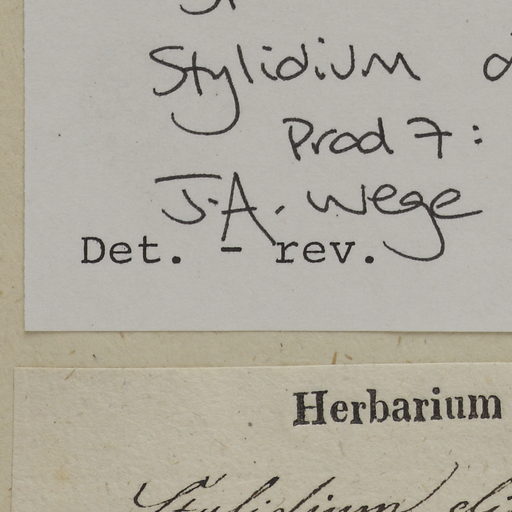 Stylidium
Prod 7:
J.A. Wege
Det. - rev.
Herbarium
Stylidium